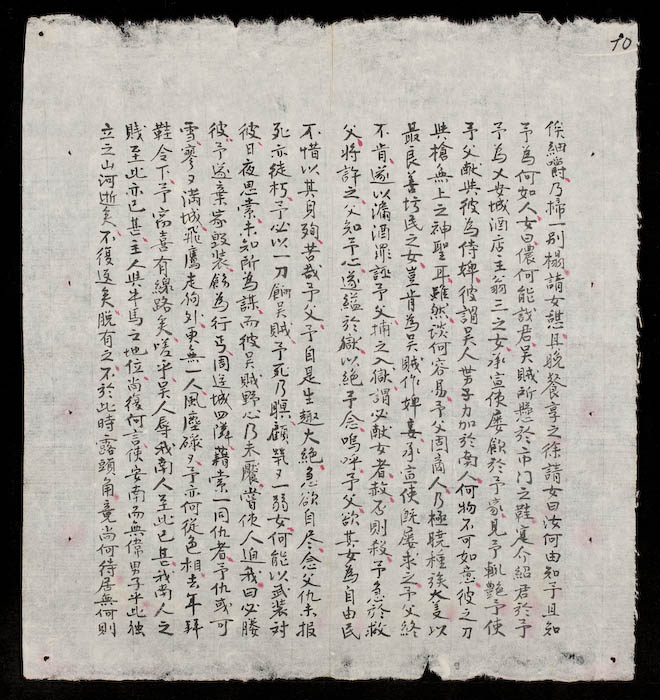 10
俟細嚼乃掃一別榻請女憩且晚餐享之徐請女曰汝何由知予且知
予為何如人女曰儂何能識君吳賊所懸於市門之鞋寔介紹君於予
予為乂安城酒店主翁三之女承宣使屢飲於予豪見予輒艷予使
予父獻與彼為侍婢彼謂吳人勢予力加於南人何物不可如意彼之刀
與槍無上之神聖耳雖然談何容易予父固商人乃極曉種族大義以
最良善坊民之女豈肯為吳賊作婢妾承宣使既屢求之予父終
不肯遂以瀋酒罪誣予父捕之入獄謂必獻女者赦否則殺予急於救
父將許之父知予心遂縊於獄以絕予念嗚呼予父欲其女為自由民
不惜以其身殉苦哉予父予自是生趣大絕急欲自尽念父仇未報
死亦徒朽予必以一刀餉吳賊予死乃瞑顧煢々弱女何能以武裝对
彼日夜思索未知所為謀而彼吳賊野心乃未饜嘗使人迫我曰必媵
彼予遂棄家毀裝飾為行丐周遊城四隣藉索一同仇者予仇或可
雪寥々滿城飛鷹走狗外更無一人風塵碌々予亦何從色相去年拜
鞋令下予竊喜有線路矣嗟乎吳人辱我南人至此已甚我南人之
賤至此亦已甚主人與牛馬之地位尚復何言使安南而無偉男子乎此独
立之山河逝矣不復返矣脫有之不於此時露頭角竟尚何待居無何則